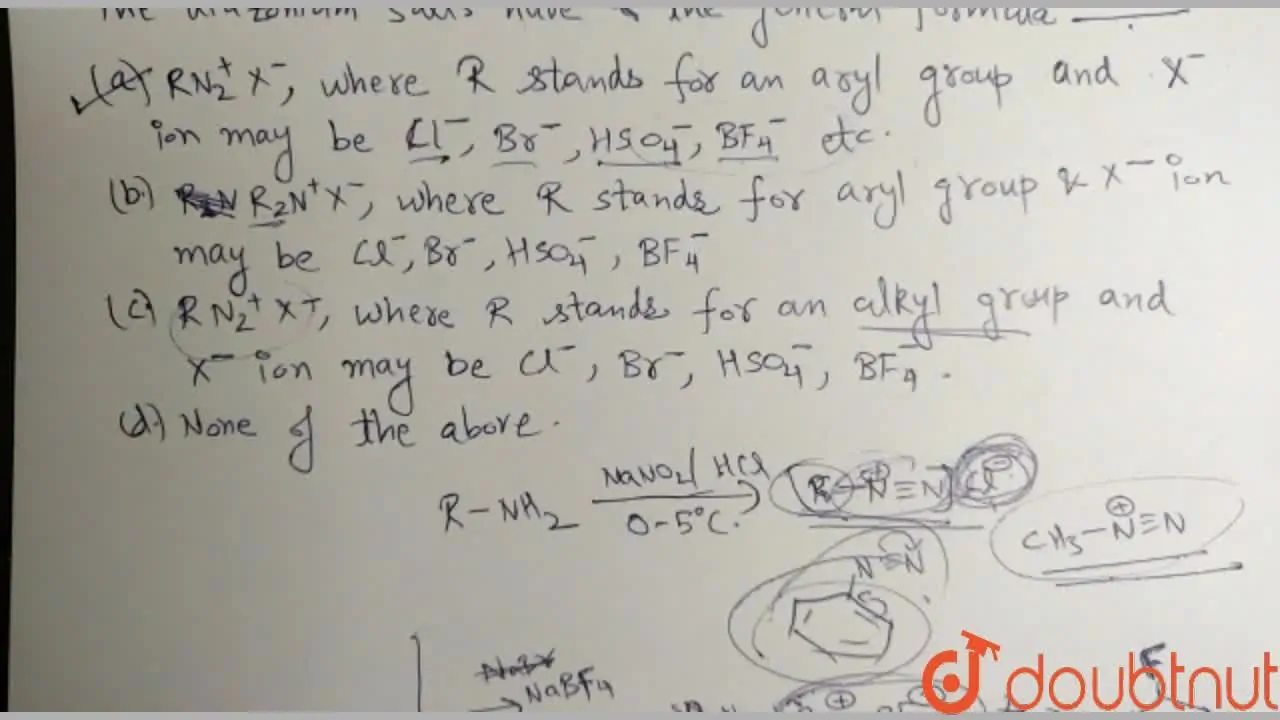 The diazonium salts have the general formula ____.
(a) RN₂⁺ X⁻, where R stands for an aryl group and X⁻
ion may be Cl⁻, Br⁻, HSO₄⁻, BF₄⁻ etc.
(b) R₂N⁺X⁻, where R stands for aryl group & X⁻ ion
may be Cl⁻, Br⁻, HSO₄⁻, BF₄⁻
(c) RN₂⁺ X⁻, where R stands for an alkyl group and
X⁻ ion may be Cl⁻, Br⁻, HSO₄⁻, BF₄⁻.
(d) None of the above.
NaNO₂/HCl
R-NH₂ → [R-N⊕≡N] Cl⊖
0-5°C.
CH₃-N⊕≡N
N≡N
NaBF₄
F
doubtnut